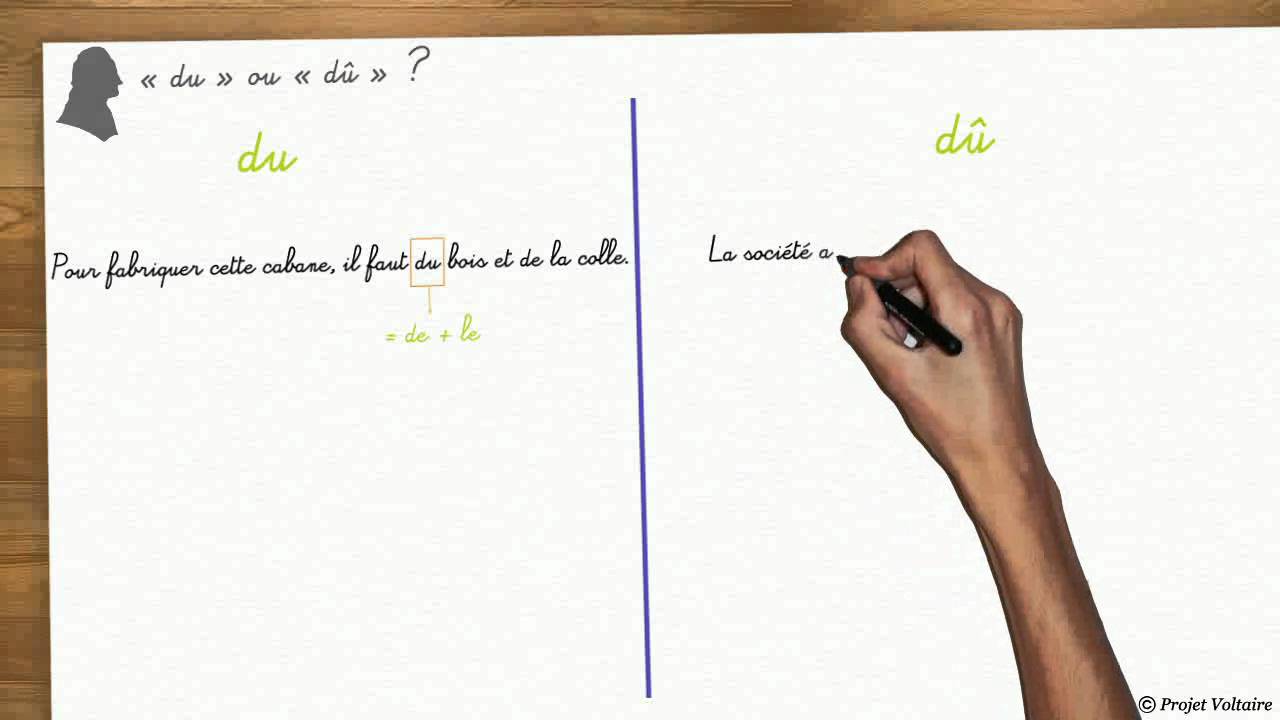 « du » ou « dû » ?
du
Pour fabriquer cette cabane, il faut du bois et de la colle.
= de + le
dû
La société a
© Projet Voltaire